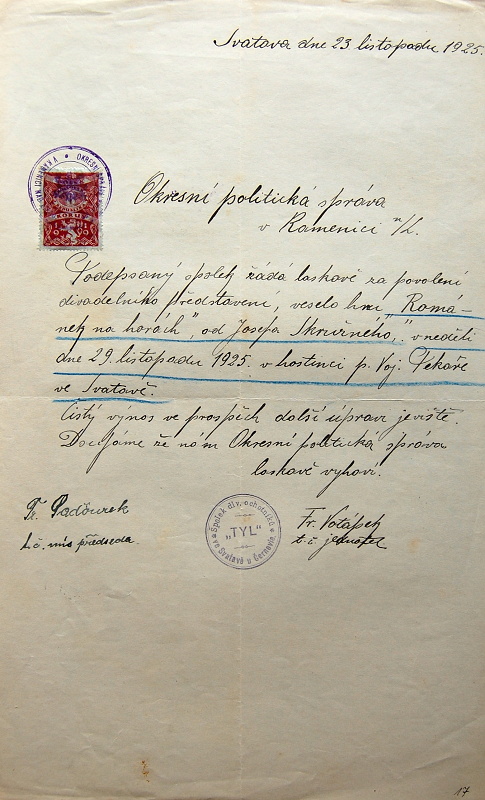 Svatava dne 23 listopadu 1925.
Okresní politická správa
v Kamenici n/L.
Podepsaný spolek žádá laskavě za povolení
divadelního představení, veselo hru „Romá-
nek na horách", od Josefa Skružného, v neděli
dne 29. listopadu 1925. v hostinci p. Voj. Pekaře
ve Svatavě.
Čistý výnos ve prospěch další úpravi jeviště.
Doufáme že nám Okresní politická správa
laskavě vyhoví.
Fr.
t. č. mís předseda
Spolek div. ochotníků
„TYL"
ve Svatavě u Černovic
Fr.
t. č. jednatel
OKRESNÍ
17